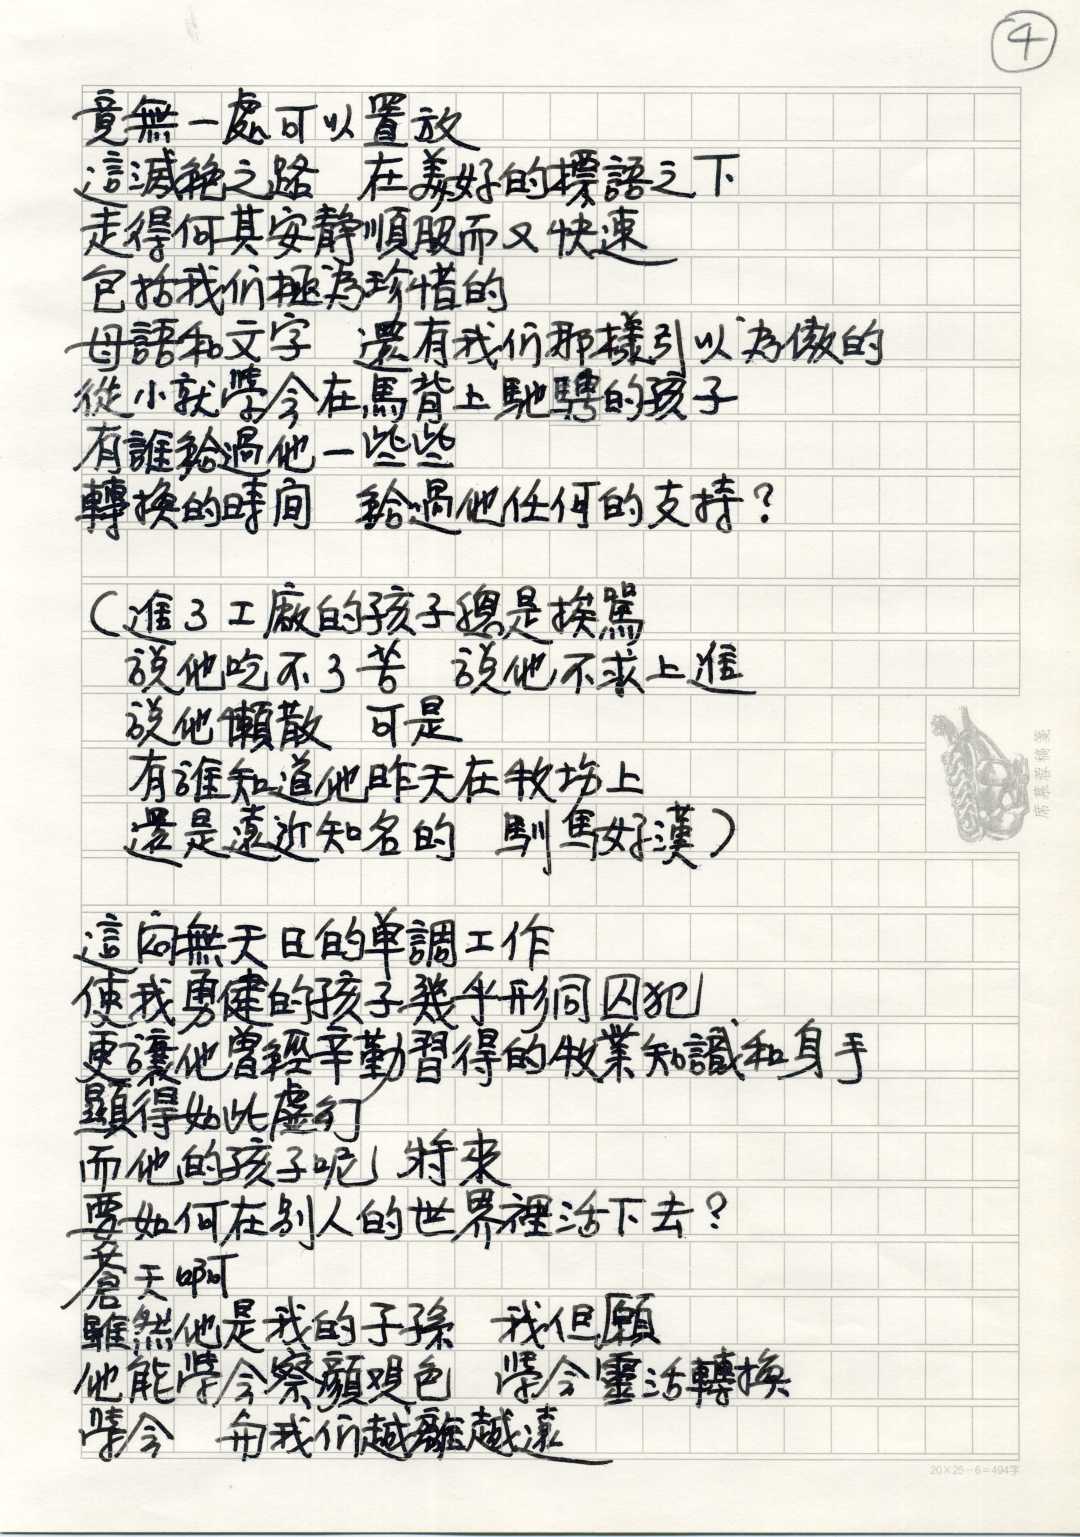 4
竟無一處可以置放
這滅絕之路　在美好的標語之下
走得何其安靜順服而又快速
包括我们極為珍惜的
母語和文字　還有我们那樣引以為傲的
從小就學会在馬背上馳騁的孩子
有誰給過他一些些
轉換的時间　給過他任何的支持？
（進了工廠的孩子總是挨罵
說他吃不了苦　說他不求上進
說他懶散　可是
有誰知道他昨天在牧場上
還是遠近知名的　馴馬好漢）
這向無天日的单調工作
使我勇健的孩子幾乎形同囚犯
更讓他曾經辛勤習得的牧業知識和身手
顯得如此虛幻
而他的孩子呢　將來
要如何在別人的世界裡活下去？
蒼天啊
雖然他是我的子孫　我但願
他能學会察顏观色　學会靈活轉換
學会　向我们越離越遠
席慕蓉稿箋
20×25－6＝494字